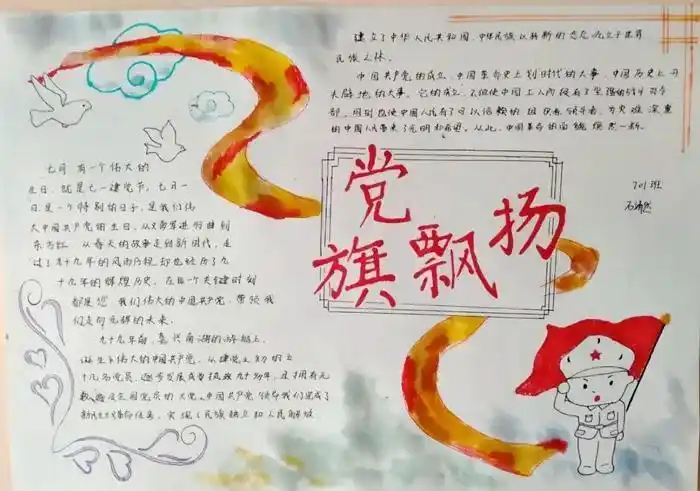 党
旗飘扬
七月 有一个伟大的
生日, 就是七一建党节, 七月一
日是一个特别的日子, 是我们伟
大中国共产党的生日, 从
东方红 从春天的故事走进新时代, 走
过了九十九年的风雨历程 却也经历了九
十九年的辉煌历史, 在每一个关键时刻
都是您 我们伟大的中国共产党, 带领我
们走向光辉的未来.
九十九年前, 嘉兴南湖的游船上,
诞生了伟大的中国共产党, 从建党之初的五
十几名党员, 逐步发展成执政 的大党. 中国共产党 领导我们完成了
新民主主义革命任务, 实现了民族独立和人民解放
建立了中华人民共和国, 中华民族以崭新的姿态屹立于世界
民族之林.
中国共产党的成立, 中国革命史上划时代的大事, 中国历史上开
天辟地的大事. 它的成立, 不但使中国工人阶级有了坚强的战斗司令
部, 同时也使中国人民有了可以信赖的组织者 领导者, 为灾难深重
的中国人民带来了光明和希望. 从此, 中国革命的面貌焕然一新.
701班